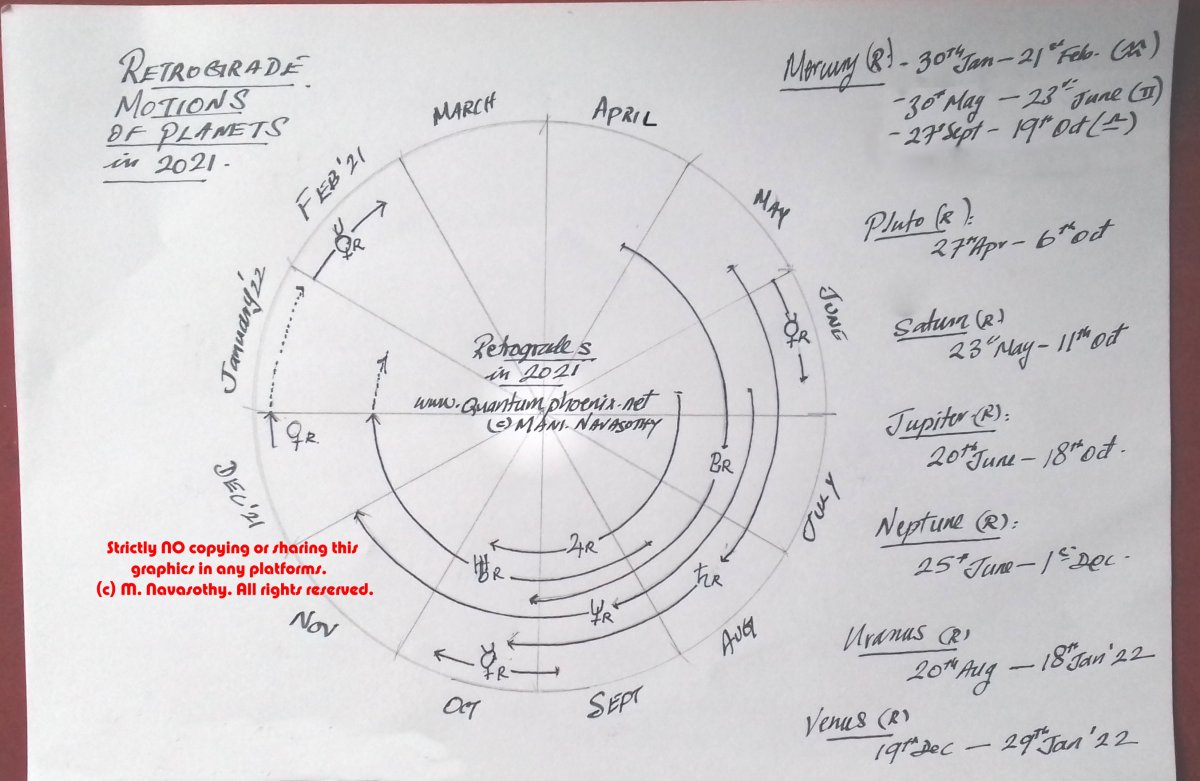 RETROGRADE
MOTIONS
OF PLANETS
in 2021.
MARCH
APRIL
MAY
JUNE
JULY
AUG
SEPT
OCT
NOV
DEC'21
January'22
FEB'21
☿R
☿R
♇R
♄R
♃R
♅R
♆R
☿R
♀R
Retrogrades
in 2021
www.Quantumphoenix.net
(c) MANI. NAVASOTHY
Strictly NO copying or sharing this
graphics in any platforms.
(c) M. Navasothy. All rights reserved.
Mercury (R) - 30th Jan - 21st Feb. (♒)
- 30th May - 23rd June (♊)
- 27th Sept - 19th Oct (♎)
Pluto (R):
27th Apr - 6th Oct
Saturn (R)
23rd May - 11th Oct
Jupiter (R):
20th June - 18th Oct.
Neptune (R):
25th June - 1st Dec.
Uranus (R)
20th Aug - 18th Jan'22
Venus (R)
19th Dec - 29th Jan'22